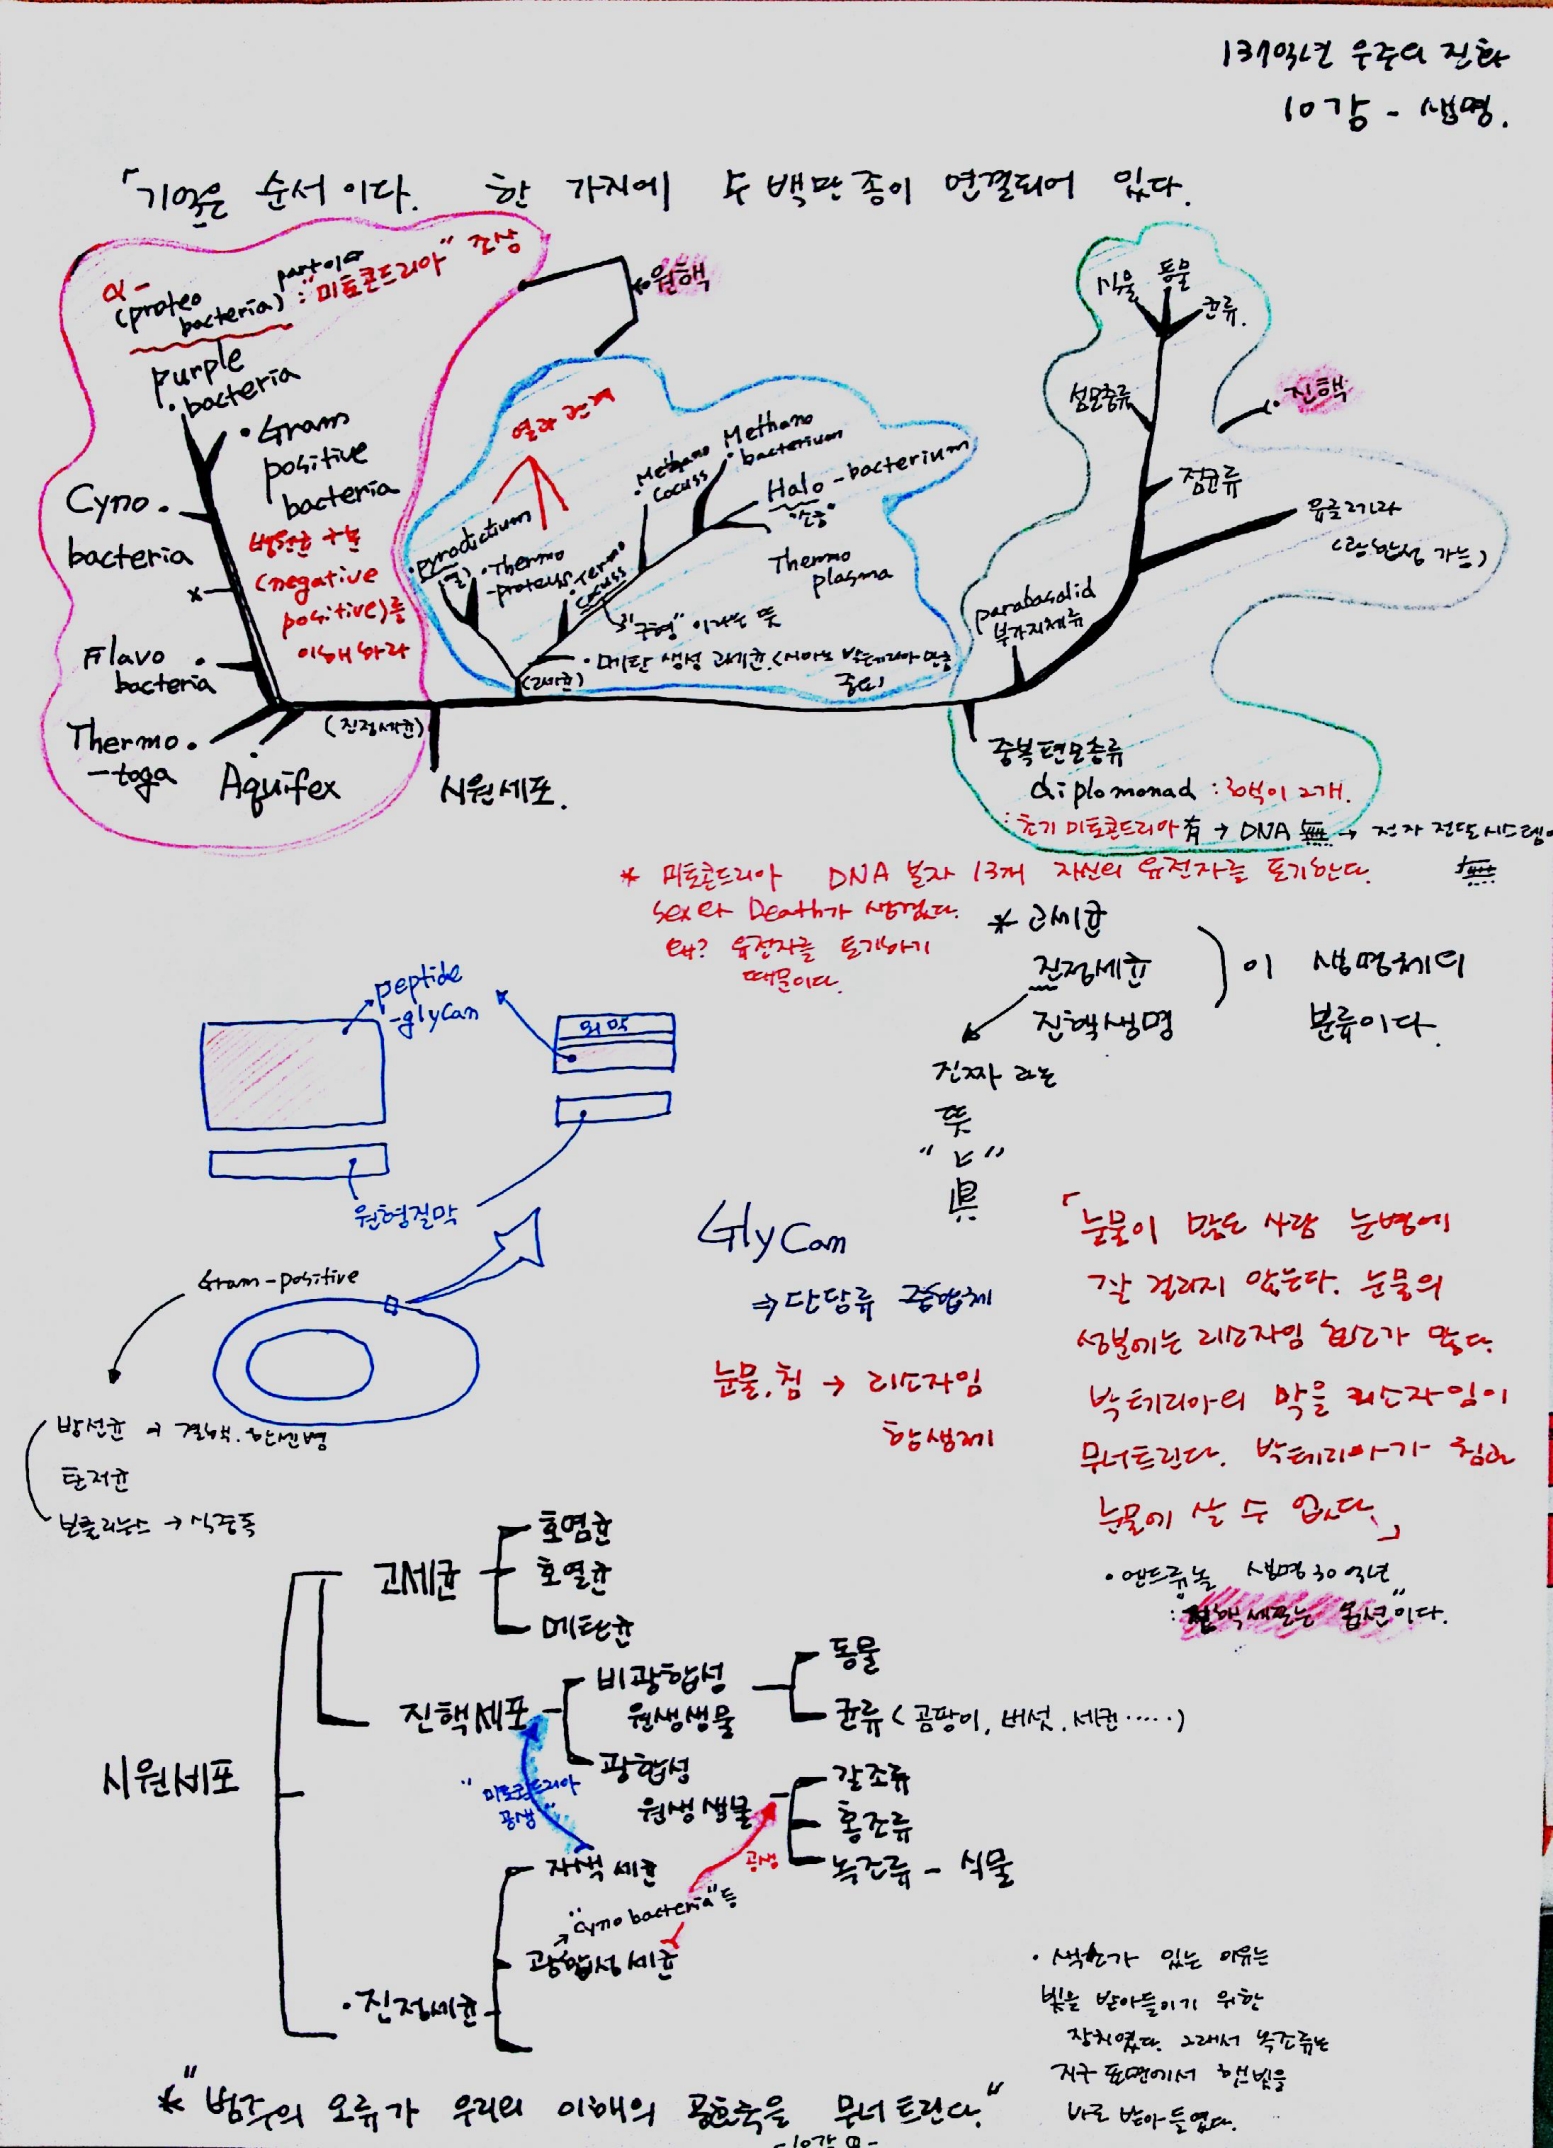 137억년 우주의 진화
10강 - 생명.
「기억은 순서이다. 한 가지에 수 백만 종이 연결되어 있다.
α-
(proteo
bacteria)
part이다
: "미토콘드리아" 조상
purple
bacteria
Gram
positive
bacteria
Cyno
bacteria
(negative
positive)를
이해하라
x
Flavo
bacteria
Thermo
-toga
Aquifex
(진정세균)
시원세포.
원핵
열과 관계
pyrodictium
Thermo
-proteuss
Termo
Cocuss
Methano
Cocuss
Methano
bacterium
Halo-bacterium
Thermo
plasma
"구형" 이라는 뜻
(고세균)
식물
동물
균류.
진핵
섬모충류
점균류
유글레나
(광합성 가능)
parabasalid
부기저체류
중복편모충류
diplomonad : 핵이 2개.
: 초기 미토콘드리아 有 → DNA 無 → 전자 전달시스템
無
* 미토콘드리아 DNA 분자 13개 자신의 유전자를 포기한다.
sex와 Death가 생겼다.
왜? 유전자를 포기하기
때문이다.
* 고세균
진정세균
진핵생명
이 생명체의
분류이다.
진짜 라는
뜻
眞
peptide
-glycan
외막
원형질막
Gram-positive
방선균 → 결핵. 한센병
탄저균
보툴리누스 → 식중독
Glycan
⇒ 단당류 중합체
눈물, 침 → 리소자임
항생제
「눈물이 많은 사람 눈병에
잘 걸리지 않는다. 눈물의
성분에는 리소자임 효소가 많다.
박테리아의 막을 리소자임이
무너트린다. 박테리아가 침과
눈물에 살 수 없다.」
• 앤드류놀 생명 30억년
: 진핵세포는 옵션"이다.
시원세포
고세균
호염균
호열균
메탄균
진핵세포
비광합성
원생생물
동물
균류 (곰팡이, 버섯, 세균 .....)
광합성
원생생물
갈조류
홍조류
녹조류 - 식물
"미토콘드리아
공생"
공생
자색 세균
"cyno bacteria"등
광합성 세균
• 진정세균
• 색소가 있는 이유는
빛을 받아들이기 위한
장치였다. 그래서 녹조류는
지구 표면에서 햇빛을
바로 받아들였다.
* "범주의 오류가 우리의 이해의 공효축을 무너트린다."